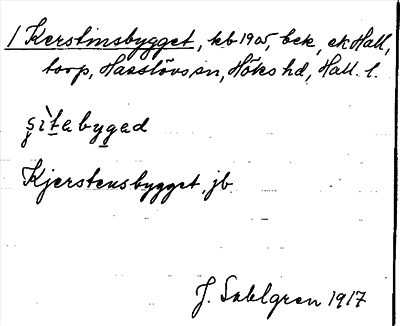 1 Kerstinsbygget, kb 1905, bek, ek Hall,
torp, Hasslövs sn, Höks hd, Hall. l.
Kjerstensbygget, jb
J. Sahlgren 1917